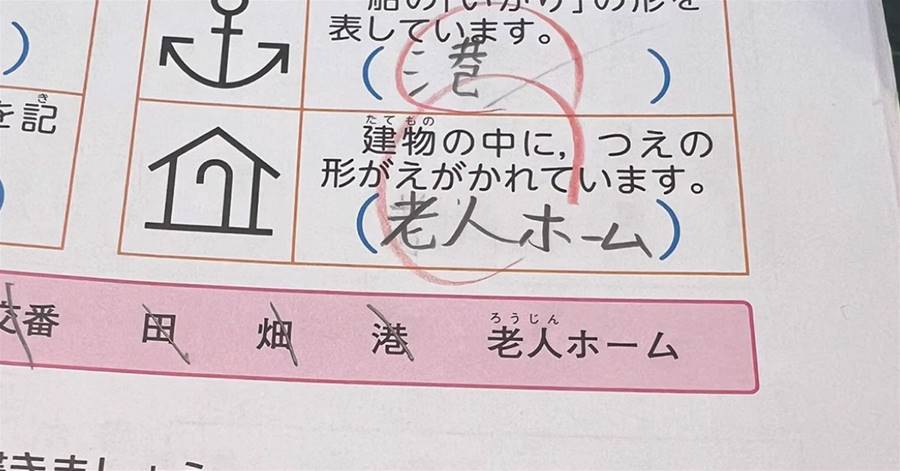 船の「いかり」の形を
表しています。
(港)
を記
き
建物の中に,つえの
たてもの
形がえがかれています。
(老人ホーム)
番 田 畑 港 老人ホーム
ろうじん